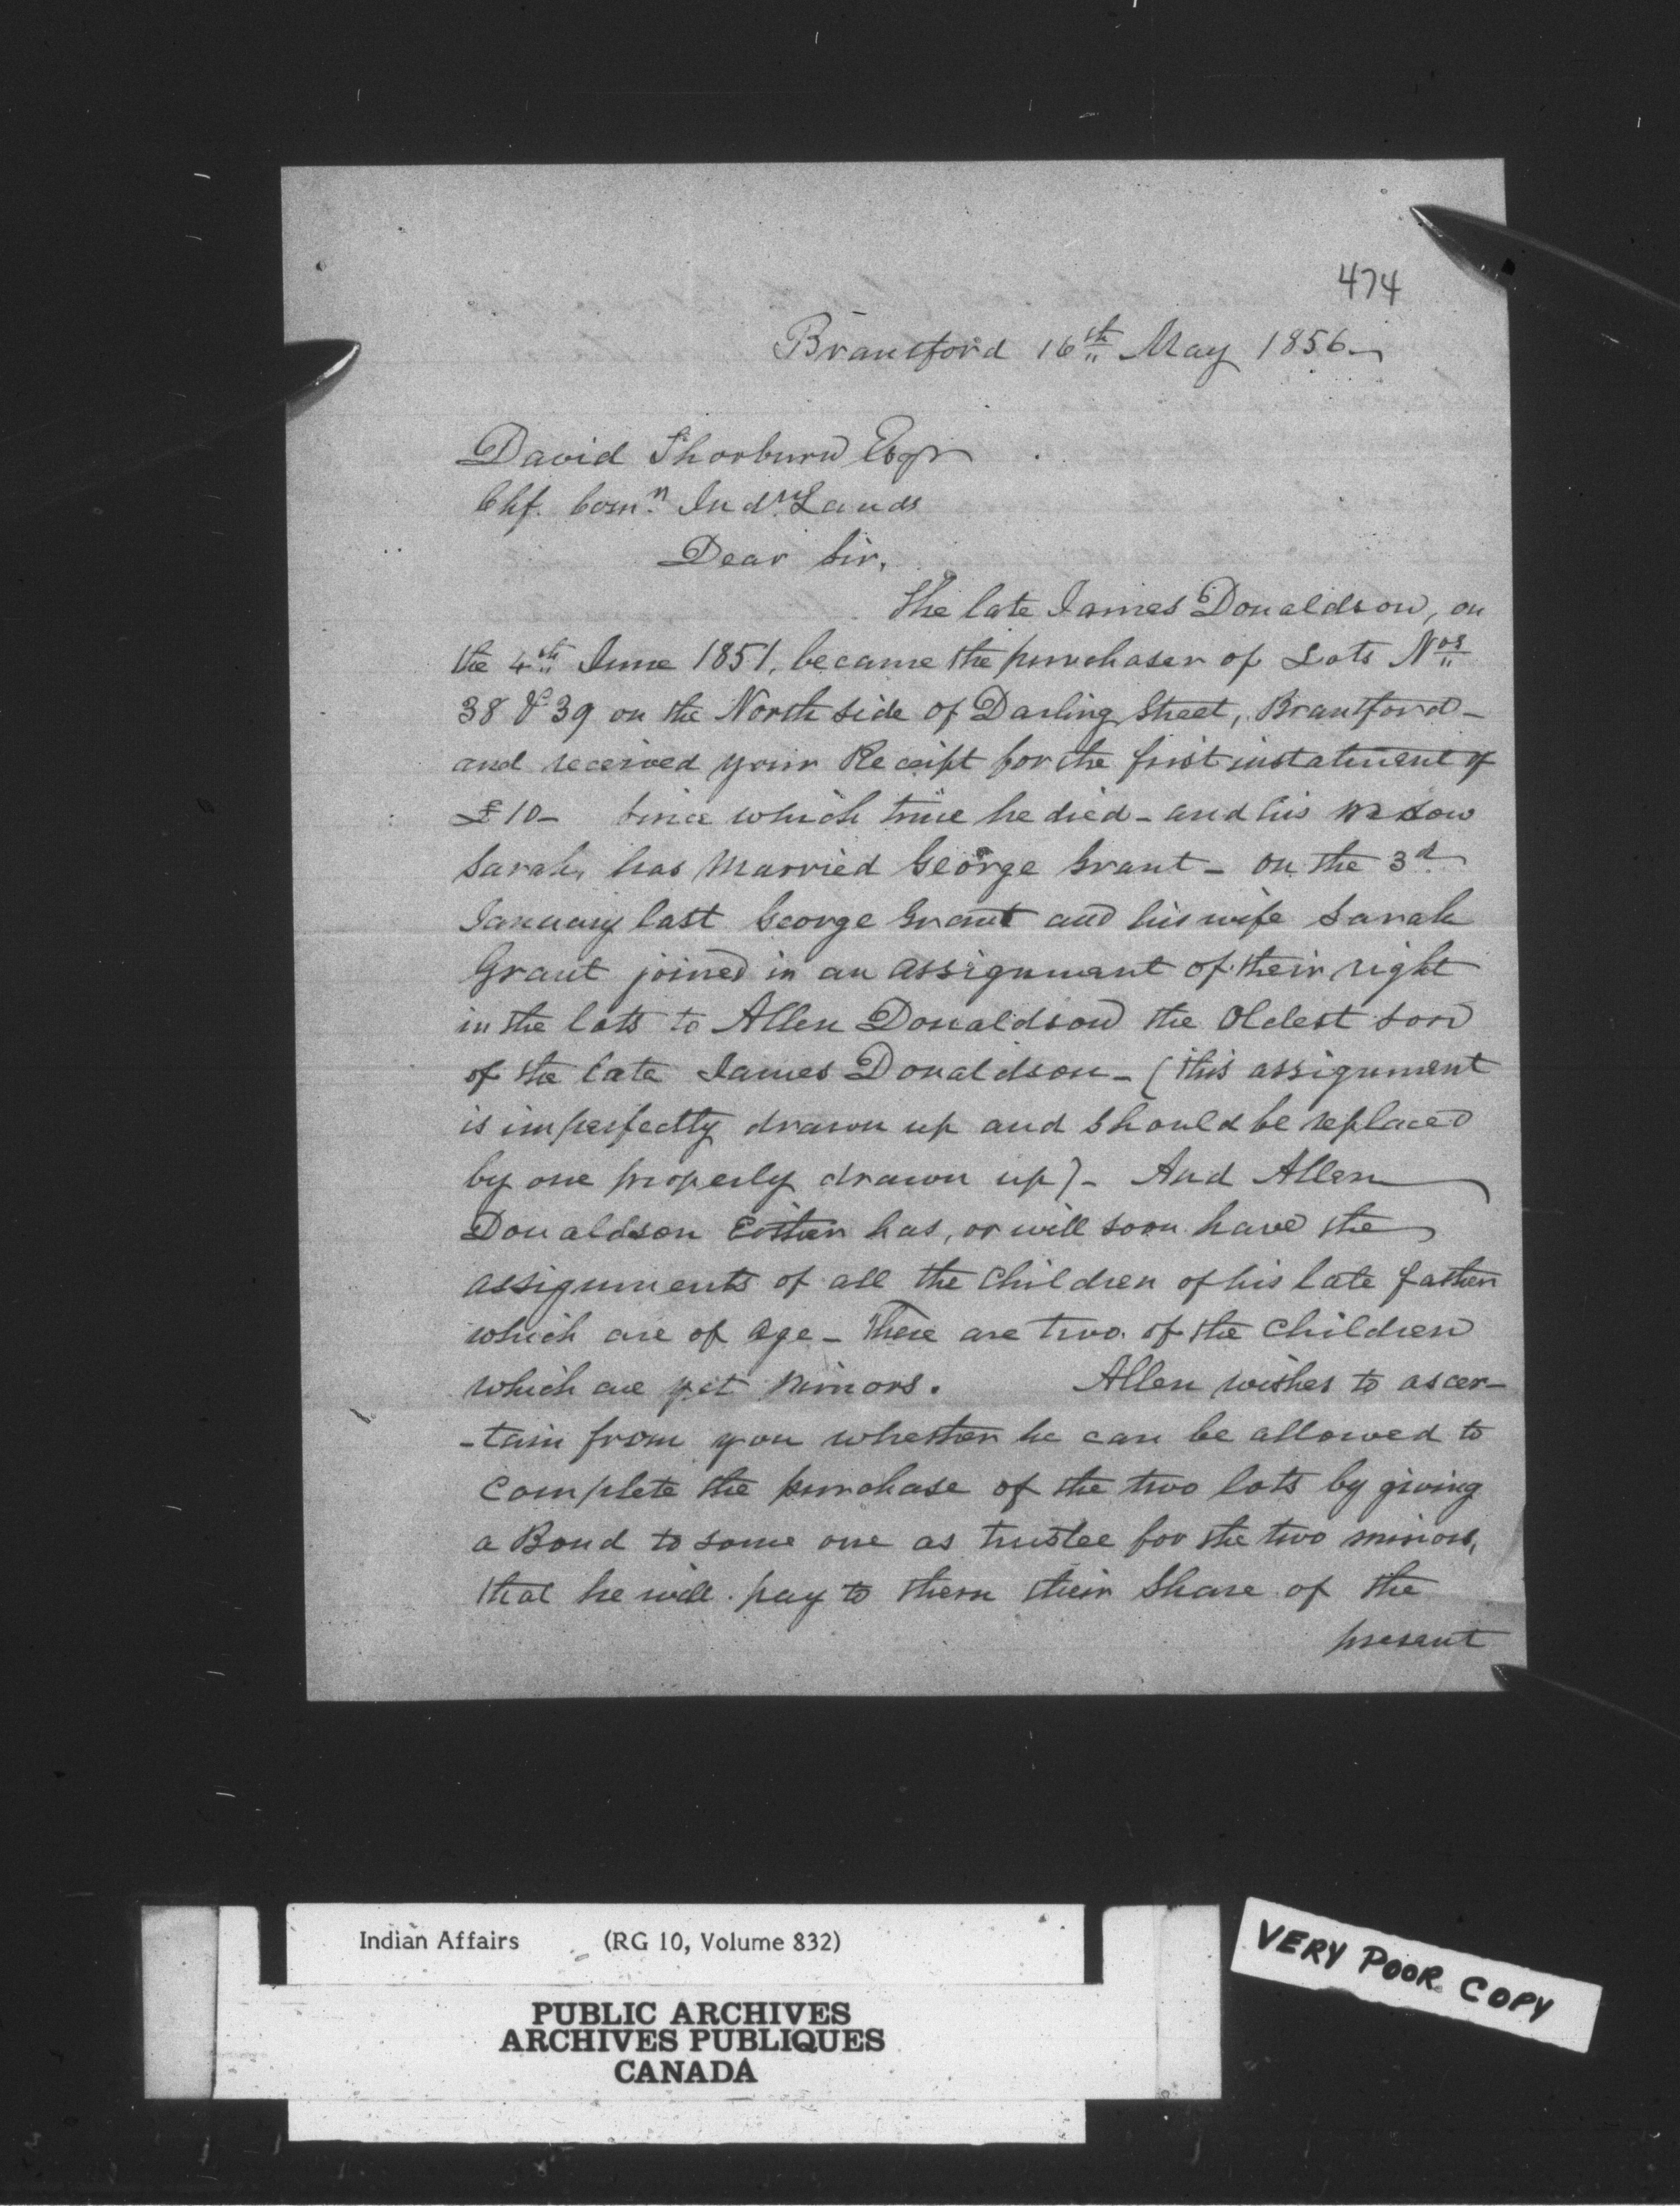 474
Brantford 16th May 1856
David Thorburn Esqr
Chf. Comn. Indn Lands
Dear Sir,
The late James Donaldson, on
the 4th June 1851, became the purchaser of Lots Nos
38 & 39 on the North side of Darling Street, Brantford -
and received your Receipt for the first instalment of
£10 - Since which time he died - and his widow
Sarah, has Married George Grant - on the 3d
January last George Grant and his wife Sarah
Grant joined in an assignment of their right
in the lots to Allen Donaldson the Oldest son
of the late James Donaldson - (this assignment
is imperfectly drawn up and should be replaced
by one properly drawn up) - And Allen
Donaldson Either has, or will soon have the
assignments of all the Children of his late father
which are of age - There are two of the Children
which are yet minors. Allen wishes to ascer-
-tain from you whether he can be allowed to
complete the purchase of the two lots by giving
a Bond to some one as trustee for the two minors,
that he will pay to them their Share of the
present
Indian Affairs (RG 10, Volume 832)
PUBLIC ARCHIVES
ARCHIVES PUBLIQUES
CANADA
VERY POOR COPY